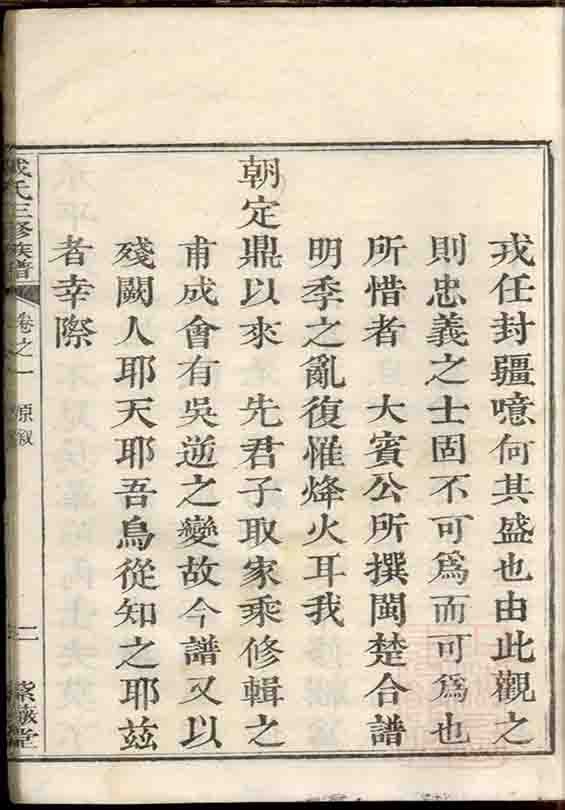 戎任封疆噫何其盛也由此觀之
則忠義之士固不可爲而可爲也
所惜者 大賓公所撰閩楚合譜
明季之亂復惟烽火耳我
朝定鼎以來 先君子取家乘修輯之
甫成會有吳逆之變故今譜又以
殘闕人耶天耶吾烏從知之耶茲
者幸際
氏三修族譜
卷之一 原敘
二
堂